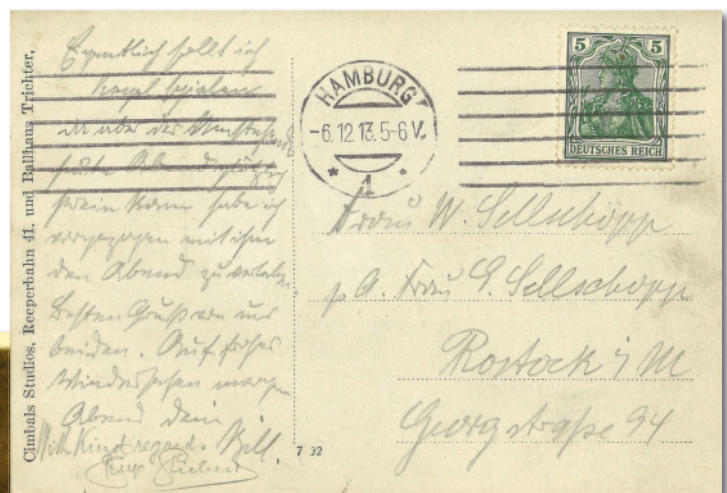 Cimbals Studios, Reeperbahn 41, und Ballhaus Trichter,
Eigentlich sollt ich
Kegel spielen
da aber der
heute Abend plötzlich
frein kam habe ich
vorgezogen mit ihm
den Abend zu verleben.
Besten Gruß von uns
beiden. Auf frohes
Wiedersehen morgen
Abend Dein
Will.
With Kind regard.
HAMBURG
-6.12.13.5-6 V.
* 1 *
5 5
DEUTSCHES REICH
Frau W. Sellschopp
p. A. Frau G. Sellschopp
Rostock i/M
Georgstraße 94
7 32